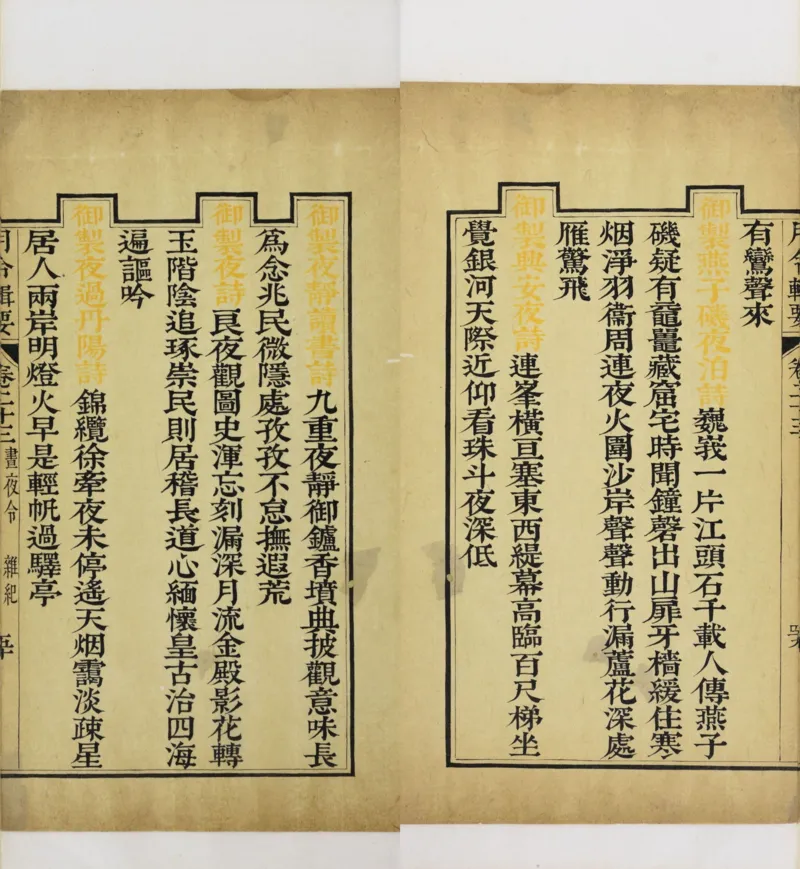 月令輯要 卷二十三
有鸞聲來
御製燕子磯夜泊詩巍峩一片江頭石千載人傳燕子
磯疑有黿鼉藏窟宅時聞鐘磬出山扉牙檣緩住寒
烟淨羽衞周連夜火圍沙岸聲聲動行漏蘆花深處
雁驚飛
御製興安夜詩連峯橫亘塞東西緹幕高臨百尺梯坐
覺銀河天際近仰看珠斗夜深低
御製夜靜讀書詩九重夜靜御鑪香墳典披觀意味長
為念兆民微隱處孜孜不怠撫遐荒
御製夜詩良夜觀圖史渾忘刻漏深月流金殿影花轉
玉階陰追琢崇民則居稽長道心緬懷皇古治四海
遍謳吟
御製夜過丹陽詩錦纜徐牽夜未停遙天烟靄淡疎星
居人兩岸明燈火早是輕帆過驛亭
月令輯要 卷二十三 晝夜令 雜紀 五十